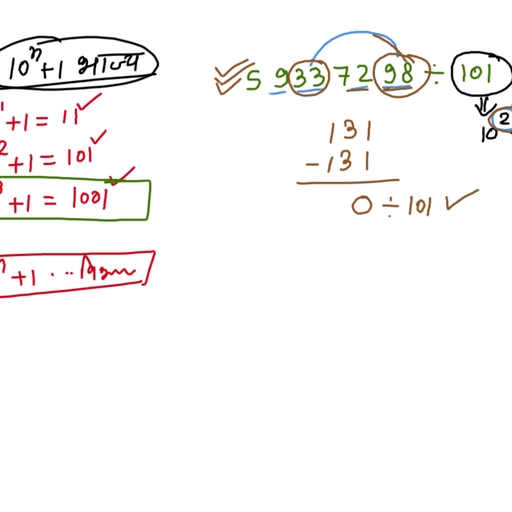 10ⁿ+1 भाज्य
¹+1 = 11
²+1 = 101
³+1 = 1001
ⁿ+1 ... नियम
5 9 33 72 98 ÷ 101
10²
131
-131
0 ÷ 101